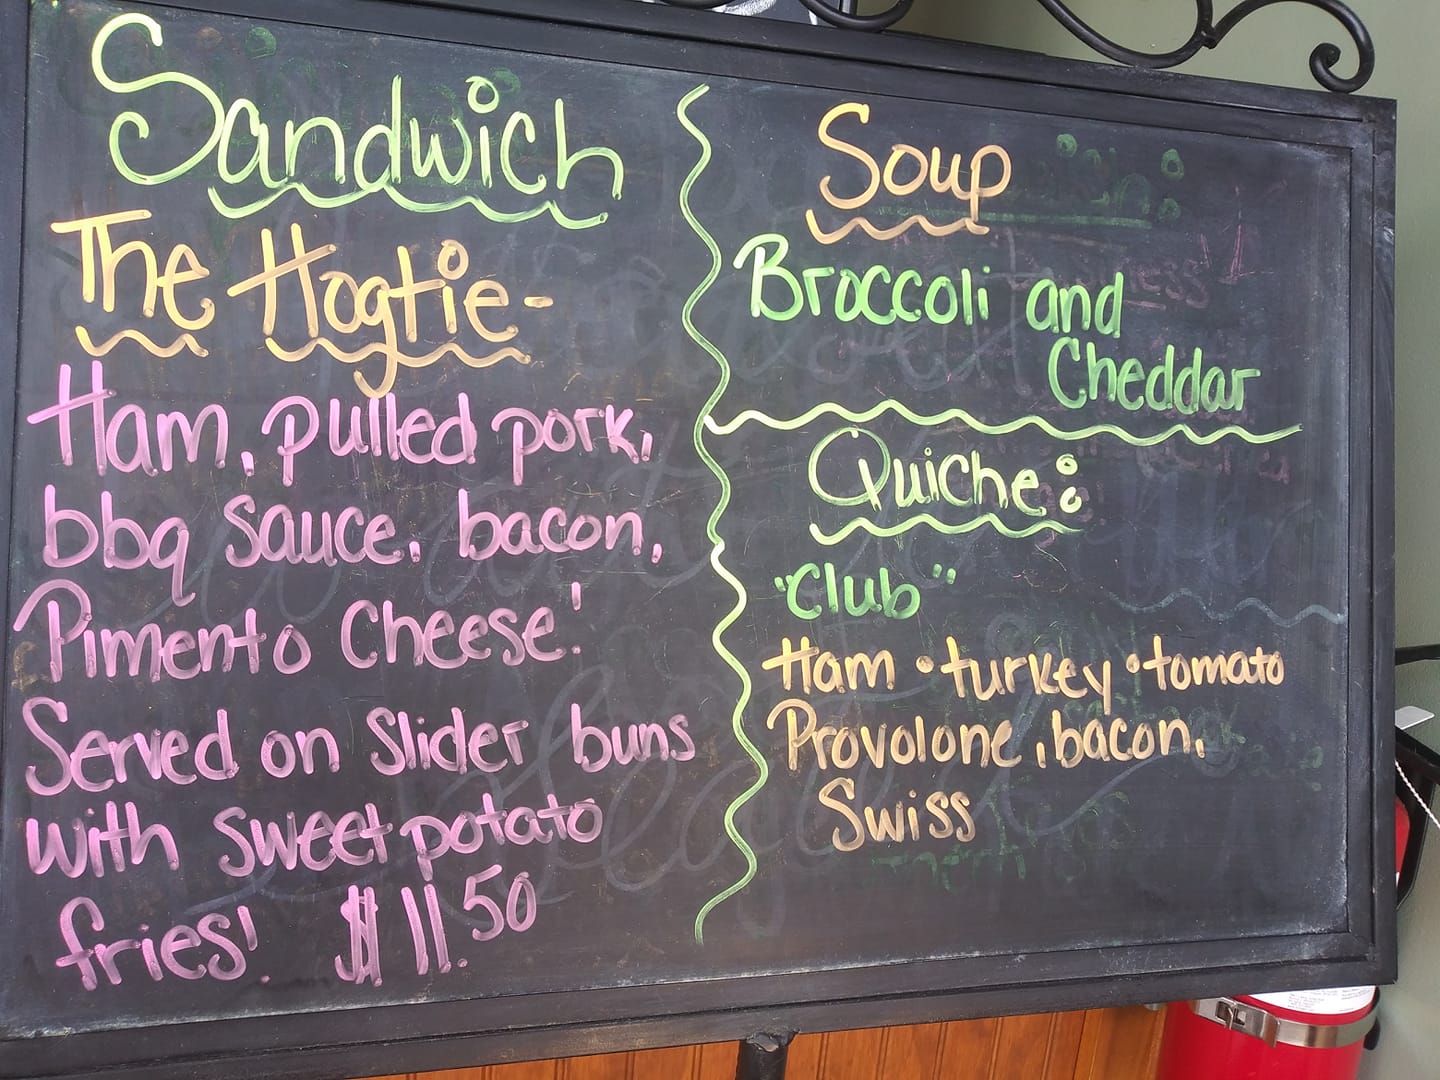 Sandwich
The Hogtie-
Ham, pulled pork,
bbq sauce, bacon,
Pimento Cheese!
Served on Slider buns
with sweet potato
fries! $11.50
Soup
Broccoli and
Cheddar
Quiche:
"Club"
Ham • turkey • tomato
Provolone, bacon,
Swiss